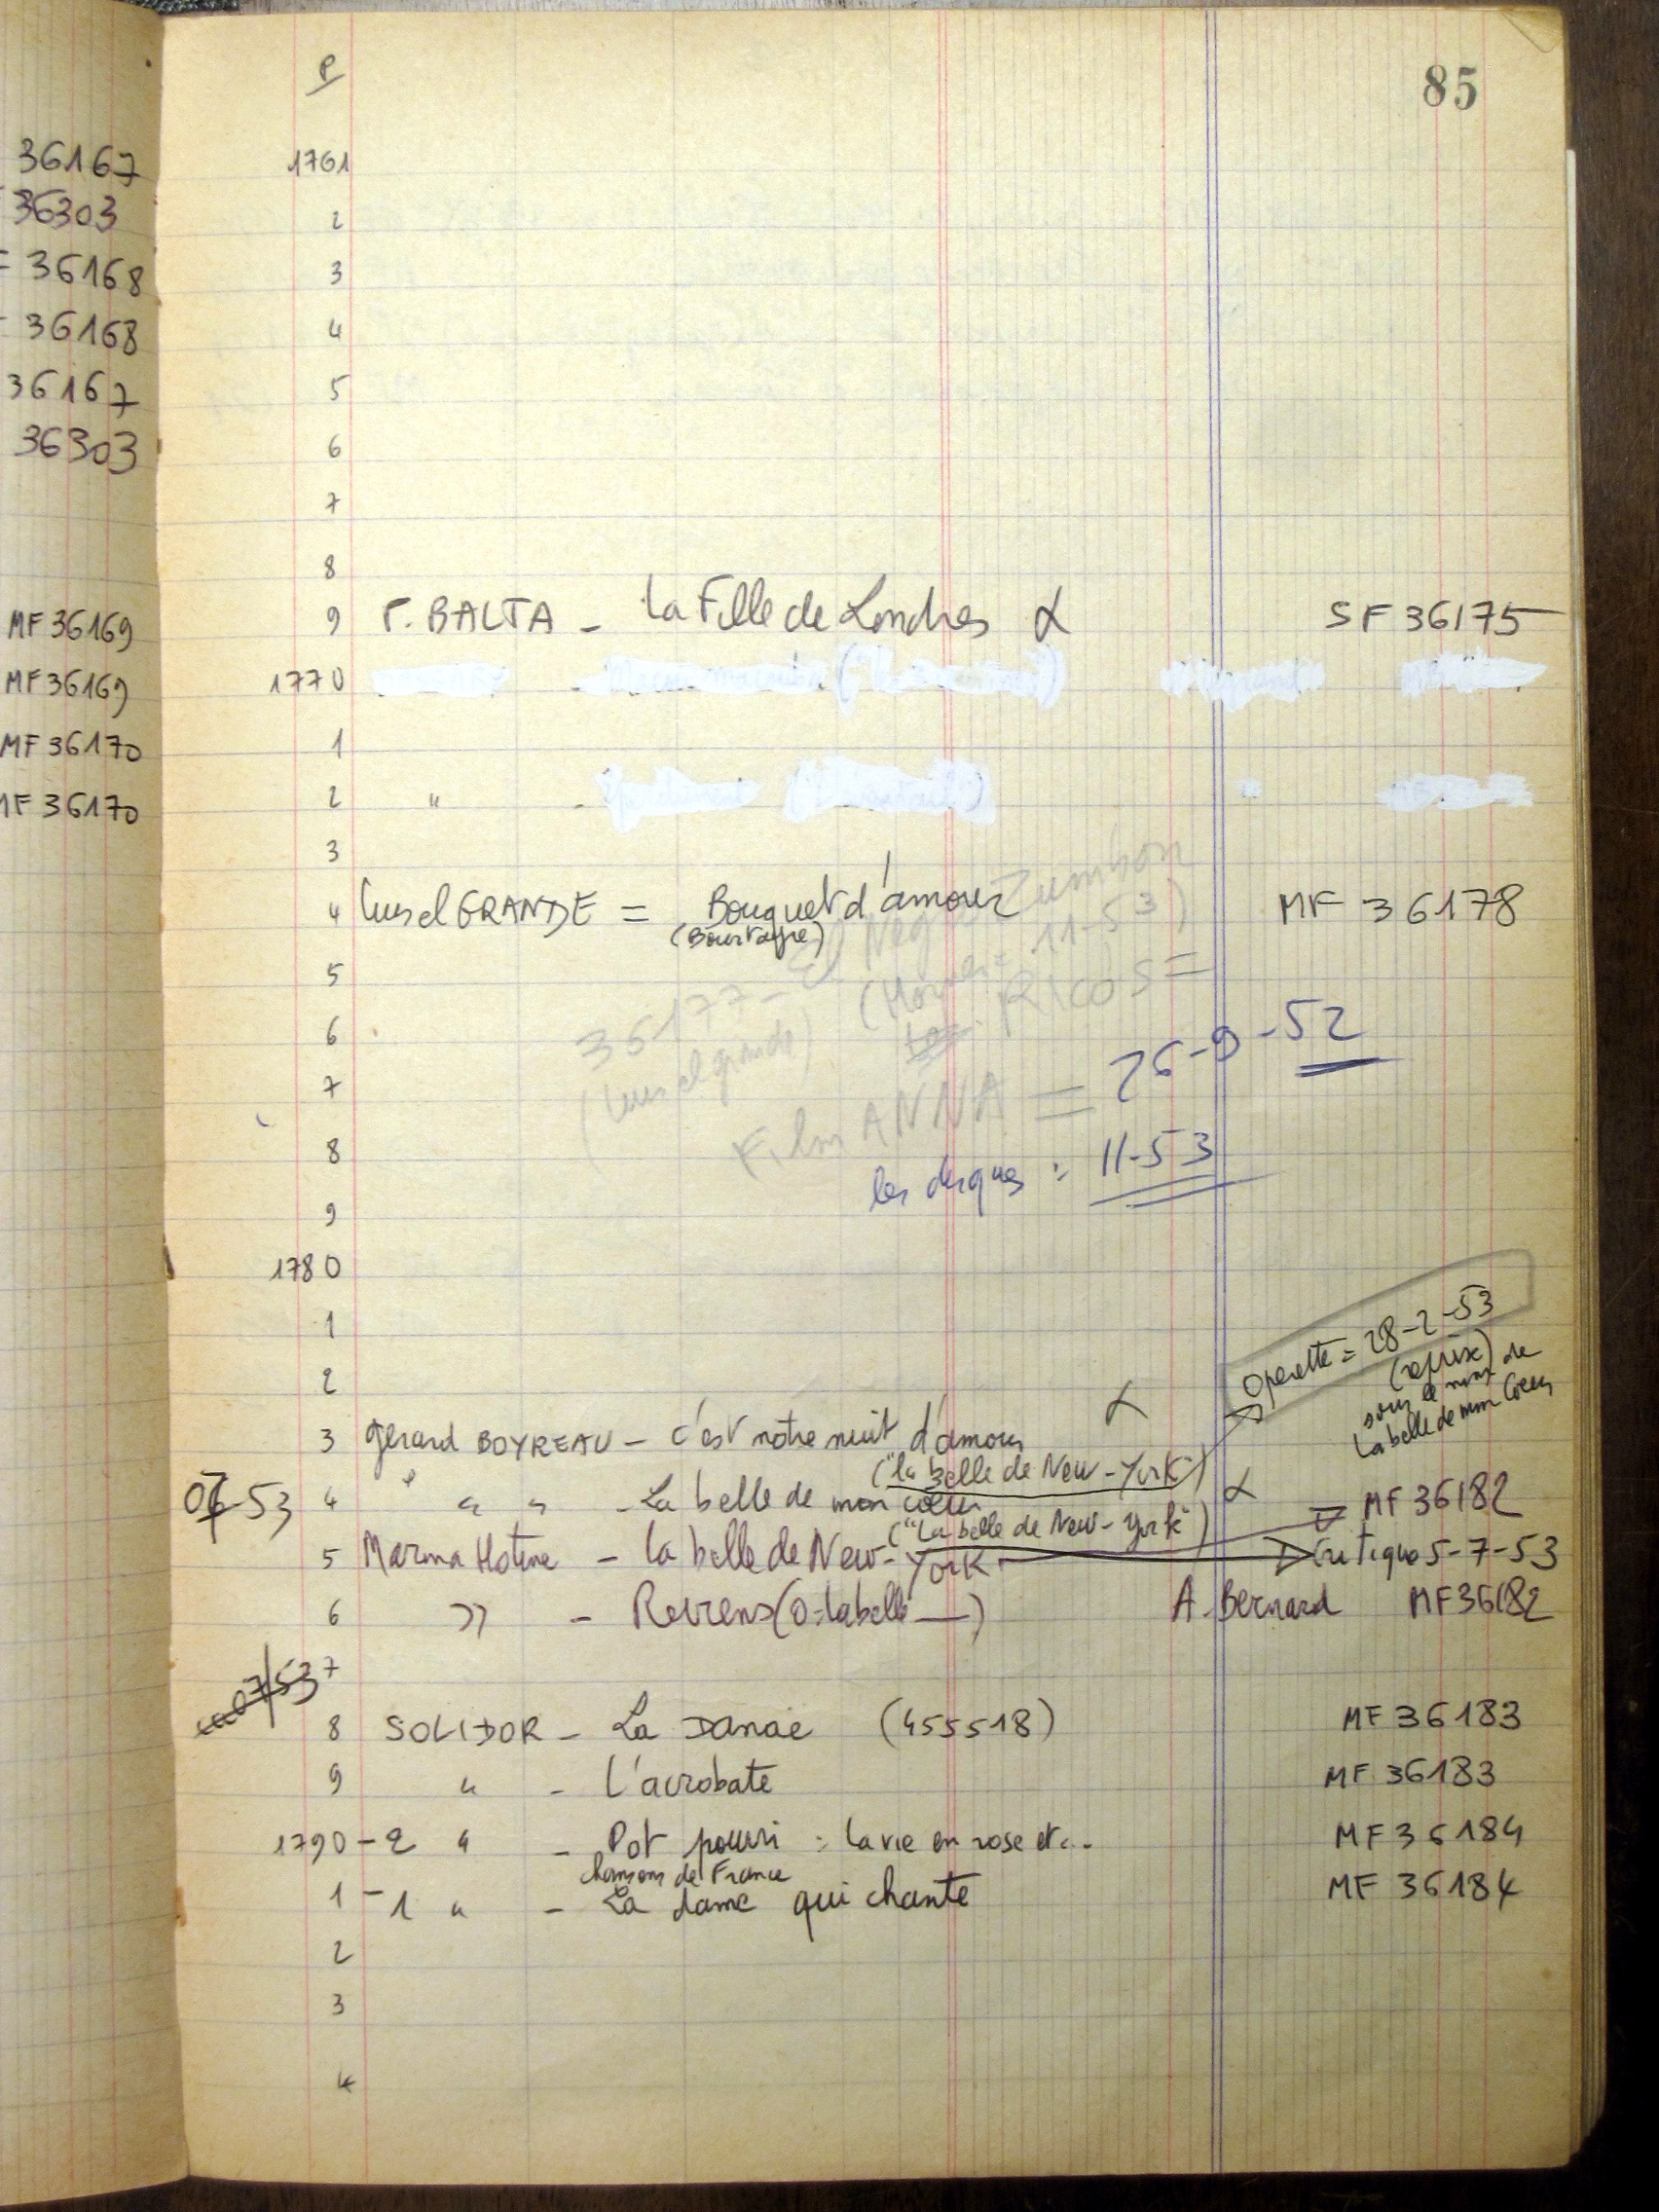 85
P
36167
1761
36303
2
36168
3
36168
4
36167
5
36303
6
7
8
MF 36169
9 BALTA - La Fille de Londres α SF 36175
MF 36169
1770
MF 36170
1
MF 36170
2 " -
3
4 Luis el GRANDE = Bouquet d'amour MF 36178
36177 - El Negro Zumbon
(Luis el grande)
11-53)
RICOS =
5
6
Film ANNA = 26-9-52
7
8
les disques : 11-53
9
1780
1
Operette = 28-2-53
(reprise)
sous le nom de
La belle de mon Coeur
2
3 Gerard BOYREAU - c'est notre nuit d'amour α
("la belle de New-York")
07-53 4 " " " - La belle de mon coeur α MF 36182
("La belle de New-York")
5 Marina Hotine - la belle de New-York Critique 5-7-53
6 " - Reviens (O = la belle —) A. Bernard MF 36182
07/53 7
8 SOLIDOR - La Danae (455518) MF 36183
9 " - L'acrobate MF 36183
1790 - 2 " - Pot pourri : la vie en rose et... MF 36184
chansons de France
1 - 1 " - La dame qui chante MF 36184
2
3
4